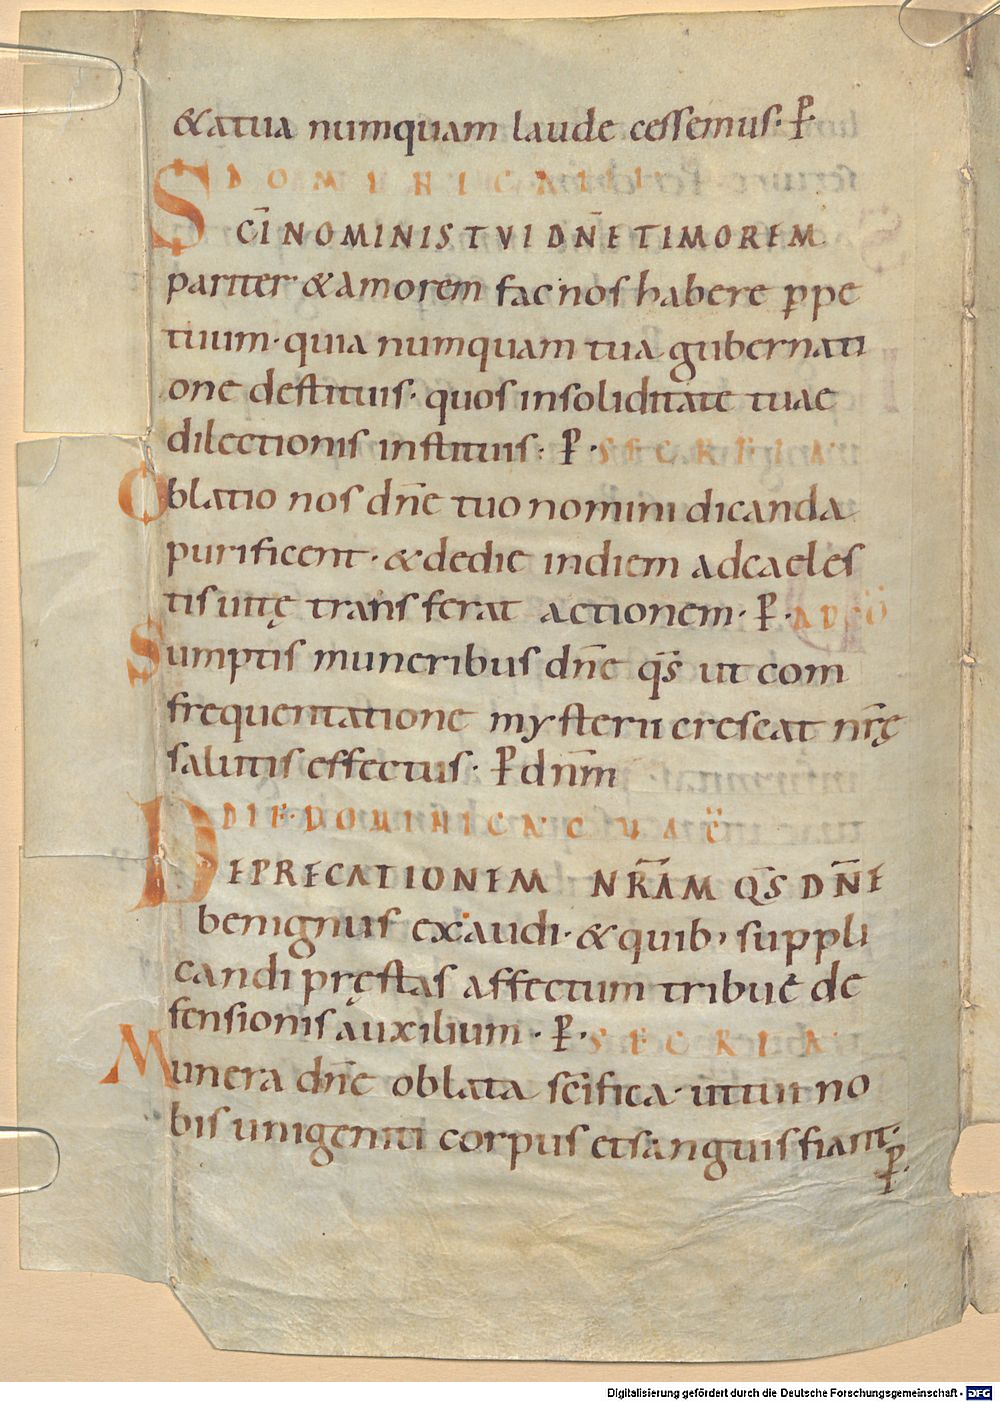 &atua numquam laude cessemus· P̄
DOMINICA III
SCI̅ NOMINIS TVI DN̅E TIMOREM
pariter &amorem fac nos habere ꝑpe
tuum· quia numquam tua gubernati
one destituis· quos insoliditate tuae
dilectionis instituis· P̄· SECRETA
Oblatio nos dn̅e tuo nomini dicanda
purificent· &dedie indiem adcaeles
tis uitę transferat actionem· P̄· AD CO̅
Sumptis muneribus dn̅e qs̅ ut com
frequentatione mysterii crescat nr̅ę
salutis effectus· P̄ dnm̅
DIE DOMINICA
DEPRECATIONEM NR̅AM QS̅ DN̅E
benignus exaudi· &quib; suppli
candi pręstas affectum tribue de
fensionis auxilium· P̄· SECRETA
Munera dn̅e oblata sc̅ifica· ut tui no
bis unigeniti corpus etsanguis fiant·
P̄·
Digitalisierung gefördert durch die Deutsche Forschungsgemeinschaft - DFG